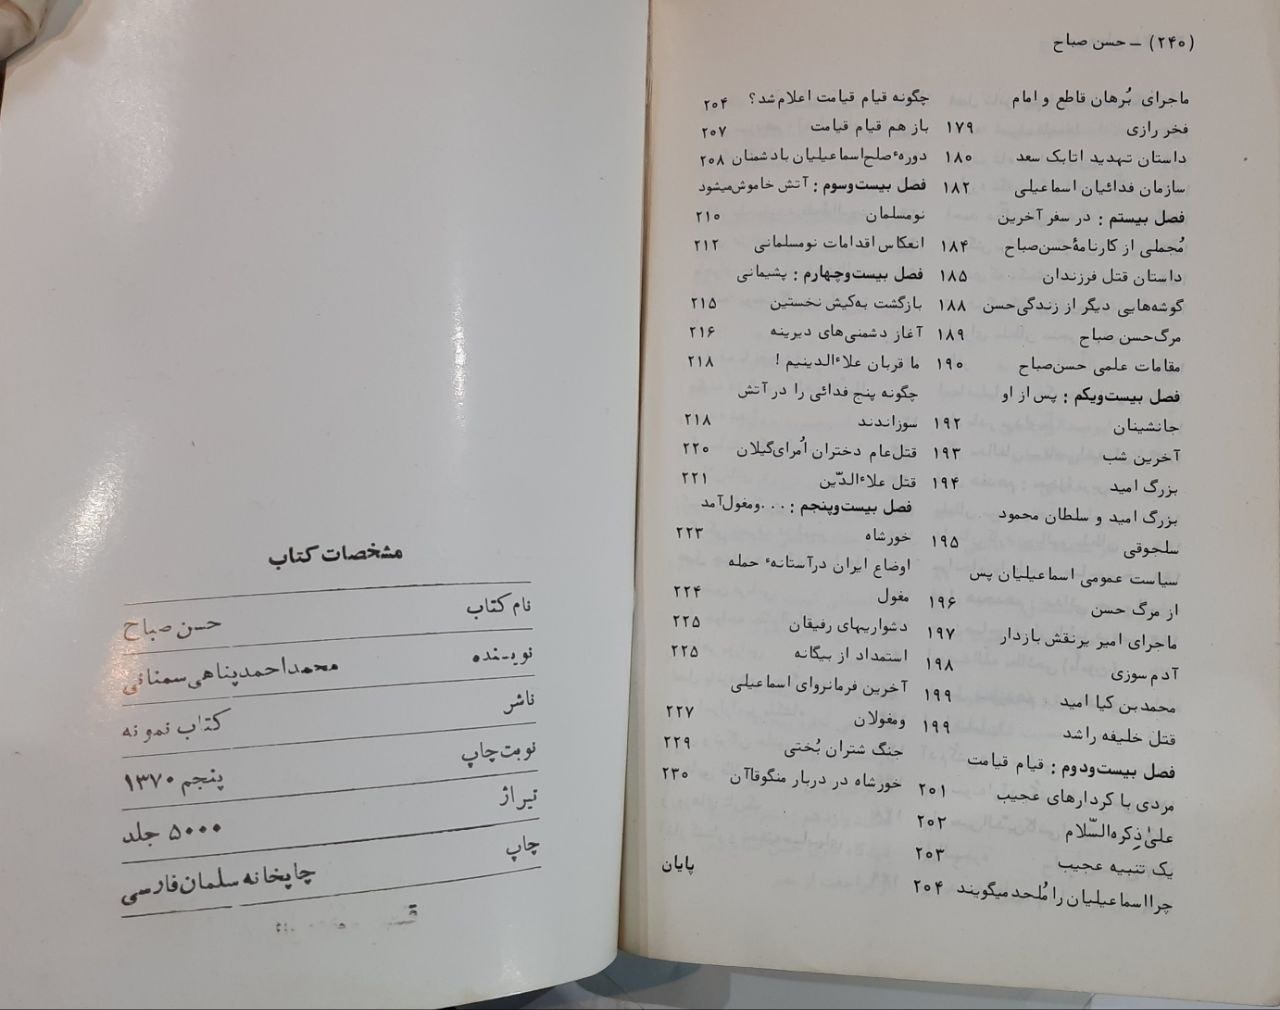 (۲۴۰) – حسن صباح
ماجرای بُرهان قاطع و امام
فخر رازی ۱۷۹
داستان تهدید اتابک سعد ۱۸۰
سازمان فدائیان اسماعیلی ۱۸۲
فصل بیستم : در سفر آخرین
مُجملی از کارنامهٔ حسن‌صباح ۱۸۴
داستان قتل فرزندان ۱۸۵
گوشه‌هایی دیگر از زندگی‌حسن ۱۸۸
مرگ‌حسن صباح ۱۸۹
مقامات علمی حسن‌صباح ۱۹۰
فصل بیست‌ویکم : پس از او
جانشینان ۱۹۲
آخرین شب ۱۹۳
بزرگ امید ۱۹۴
بزرگ امید و سلطان محمود
سلجوقی ۱۹۵
سیاست عمومی اسماعیلیان پس
از مرگ حسن ۱۹۶
ماجرای امیر یرنقش بازدار ۱۹۷
آدم سوزی ۱۹۸
محمدبن کیا امید ۱۹۹
قتل خلیفه راشد ۱۹۹
فصل بیست‌ودوم : قیام قیامت
مردی با کردارهای عجیب ۲۰۱
علیٰ ذِکره السّلام ۲۰۲
یک تنبیه عجیب ۲۰۳
چرا اسماعیلیان را مُلحد میگویند ۲۰۴
چگونه قیام قیامت اعلام شد؟ ۲۰۴
باز هم قیام قیامت ۲۰۷
دورهٔ صلح اسماعیلیان بادشمنان ۲۰۸
فصل بیست‌وسوم : آتش خاموش‌میشود
نومسلمان ۲۱۰
انعکاس اقدامات نومسلمانی ۲۱۲
فصل بیست‌وچهارم : پشیمانی
بازگشت به‌کیش نخستین ۲۱۵
آغاز دشمنی‌های دیرینه ۲۱۶
ما قربان علاءالدینیم ! ۲۱۸
چگونه پنج فدائی را در آتش
سوزاندند ۲۱۸
قتل‌عام دختران اُمرای‌گیلان ۲۲۰
قتل علاءالدّین ۲۲۱
فصل بیست‌وپنجم : ...ومغول‌آمد
خورشاه ۲۲۳
اوضاع ایران درآستانهٔ حمله
مغول ۲۲۴
دشواریهای رفیقان ۲۲۵
استمداد از بیگانه ۲۲۵
آخرین فرمانروای اسماعیلی
ومغولان ۲۲۷
جنگ شتران بُختی ۲۲۹
خورشاه در دربار منگوقاآن ۲۳۰
پایان
مشخصات کتاب
نام کتاب حسن صباح
نویسنده محمداحمدپناهی‌سمنانی
ناشر کتاب نمونه
نوبت‌چاپ پنجم ۱۳۷۰
تیراژ ۵۰۰۰ جلد
چاپ چاپخانه سلمان‌فارسی